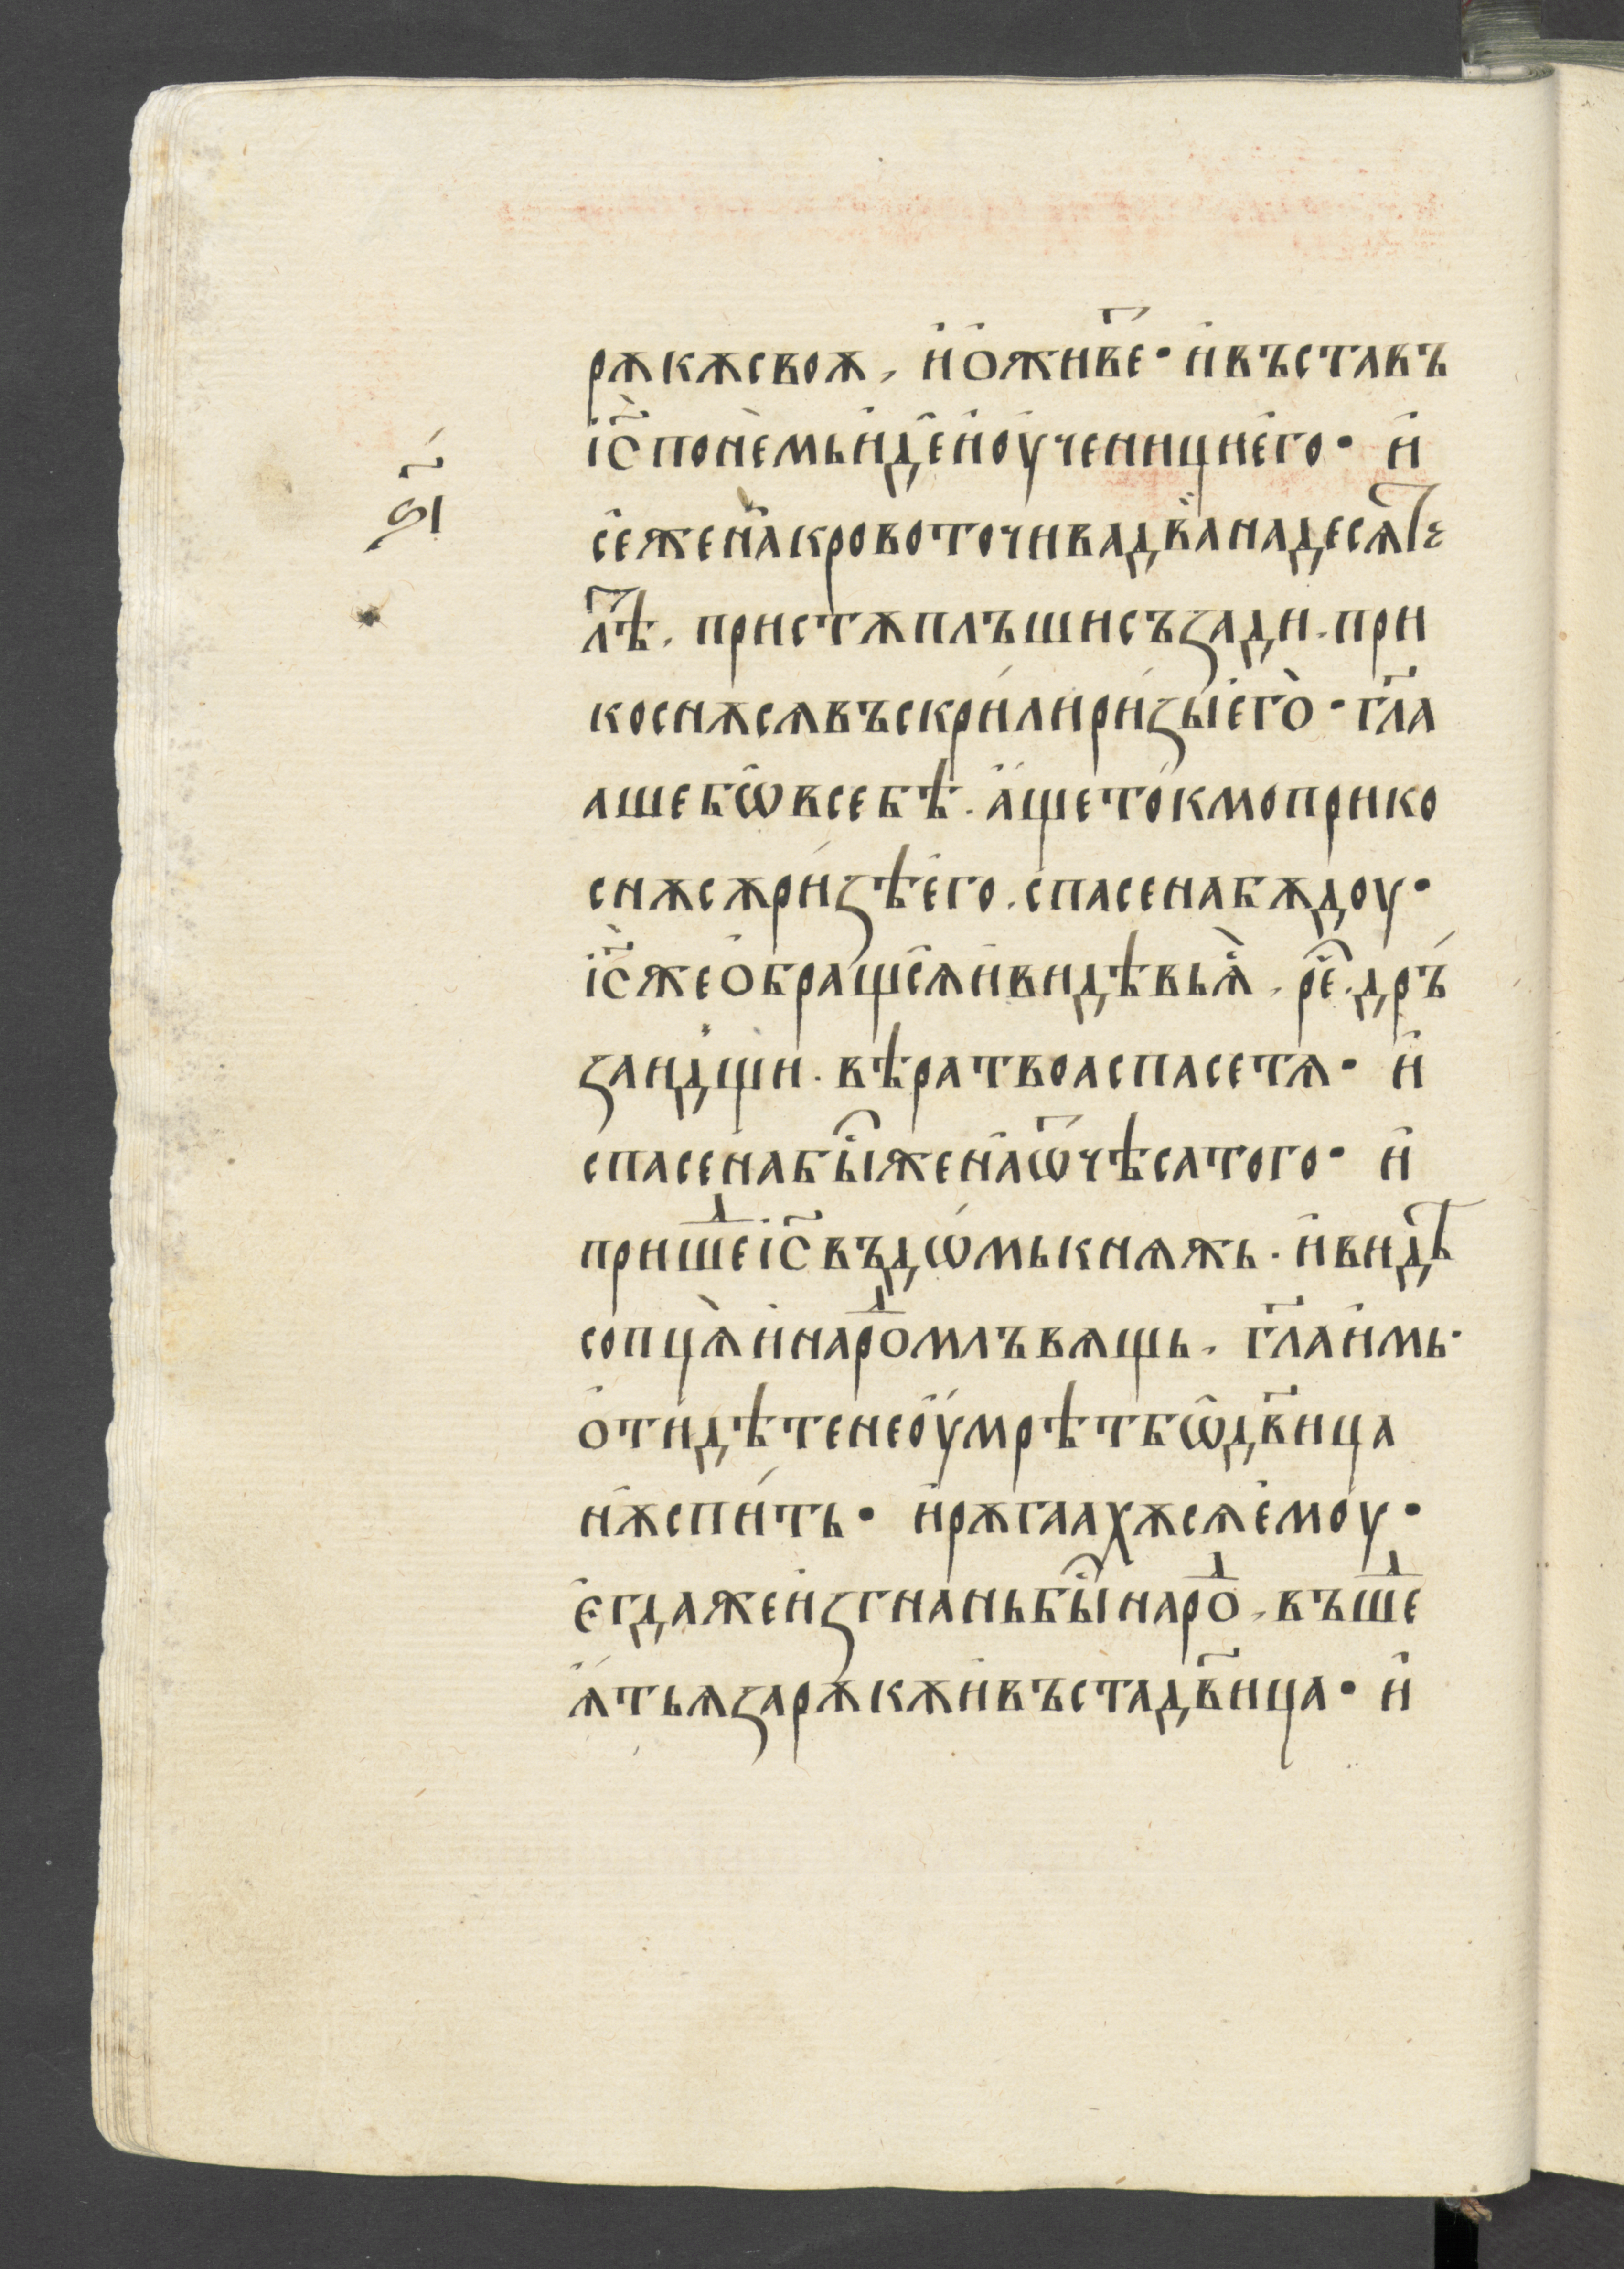 рѫкѫ своѫ, и҆ ѻ҆живе҇т · и҆ въставъ
і҆с҃ по не́мь и҆де и҆ оу҆ченици е҆го · и҆
ѕ҃і
се жена̀ кровоточива двана десѧт
лѣ҇т · пристѫплъши съзади · при
коснѫсѧ въскри́ли ри́зы е҆го̀ · гл҃а
аше бѡ̑ в себѣ · а҆́ще то́кмо прико
снѫсѧ ри́зѣ е҆го · спасена бѫдоу ·
і҆с҃ же ѻ҆бра́щсѧ и҆ видѣвь ѧ҆̀, ре҇ч · дръ́
заи дщи · вѣра твоа спасе тѧ · и҆
спасена бы҇с жена̀ ѿ чѣса того · и҆
пришеⷣ і҆с҃ въ дѡ́мь кнѧжь · и҆ видѣ
сопцѧ̀ и҆ нароⷣ млъвѧщь, гл҃а и҆мь·
ѻ҆тидѣте не оу҆́мрѣт бѡ̑ дв҃ица
нѫ̀ спи́ть · и҆ рѫгаахѫсѧ е҆мо́у ·
є҆гда же и҆згнань бы҇с нароⷣ, въшеⷣ
ѧ҆́ть ѧ за рѫкѫ и҆ въста дв҃ица · и҆